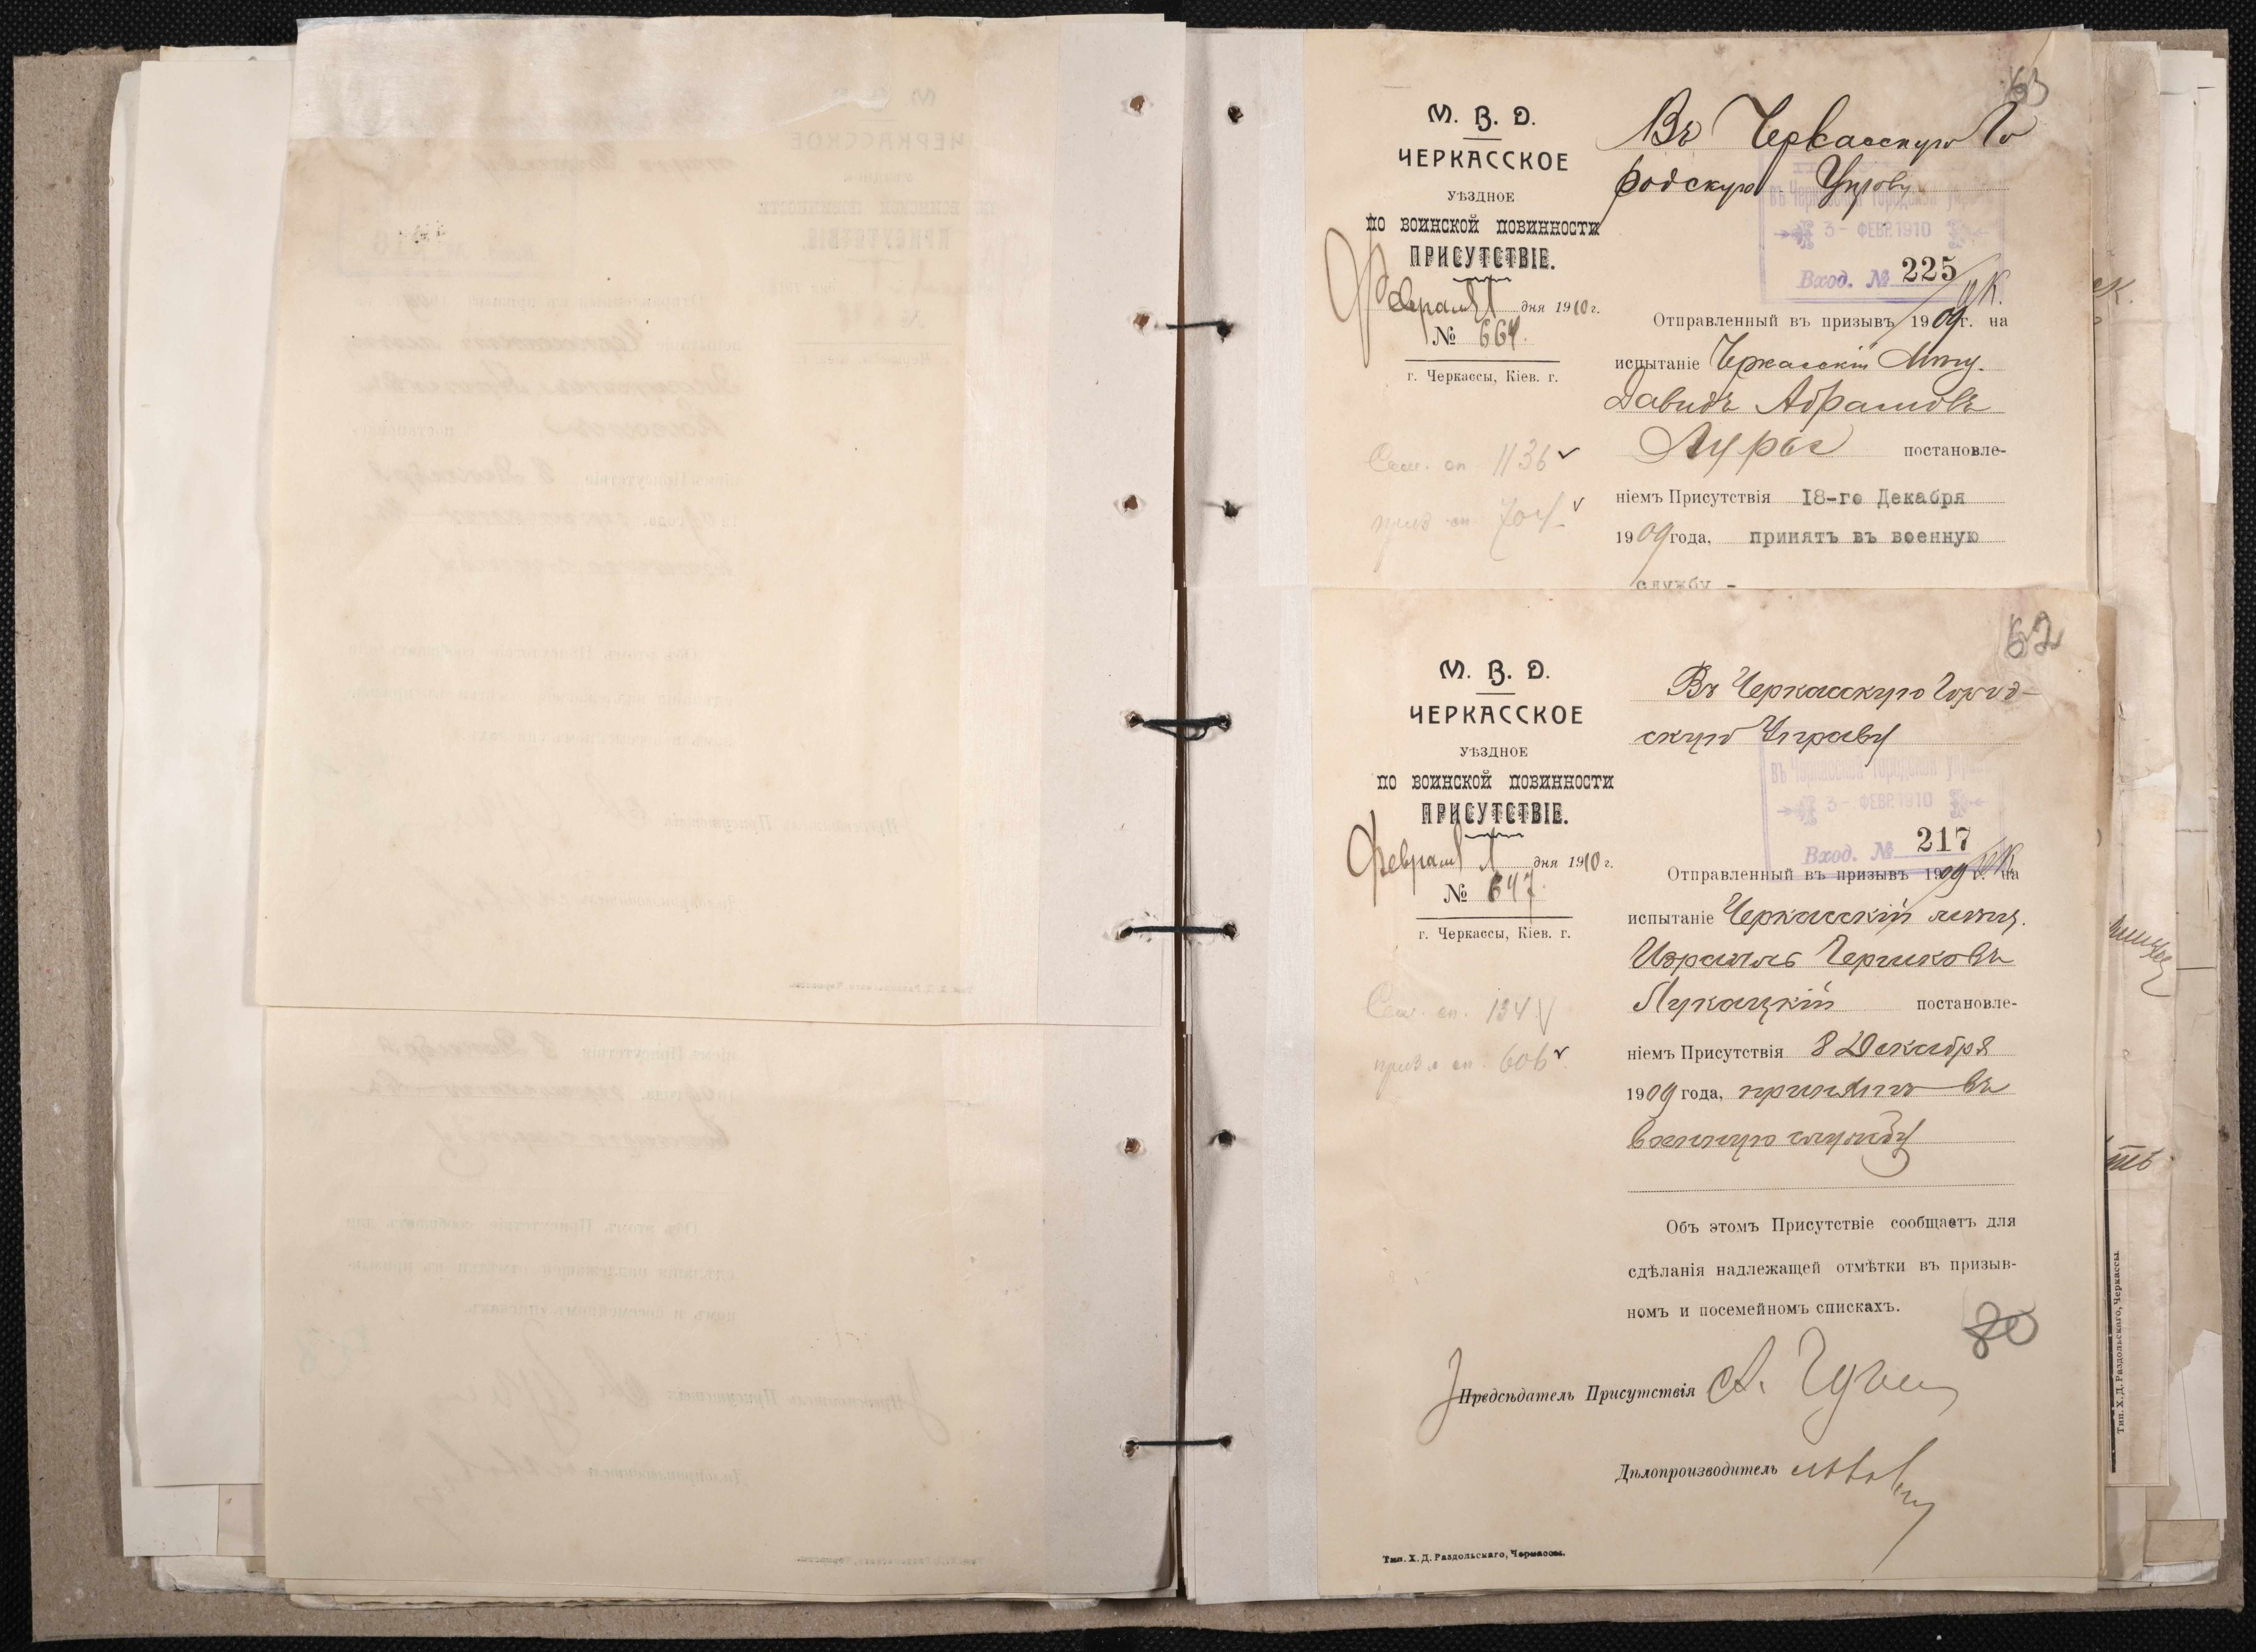 63
М. В. D.
ЧЕРКАССКОЕ
УѢЗДНОЕ
ПО ВОИНСКОЙ ПОВИННОСТИ
ПРИСУТСТВІЕ.
Февраля 1 дня 1910 г.
№ 664.
г. Черкассы, Кіев. г.
Сем. сп. 1136
приз. сп. 704
Въ Черкасскую Го
родскую Управу
въ Черкасской городской управѣ
3 - ФЕВР. 1910
Вход. № 225
Отправленный въ призывъ 1909 г. на
испытаніе Черкасскій
Давидъ Абрамовъ
постановле-
ніемъ Присутствія 18-го Декабря
1909 года, принятъ въ военную
службу -
62
М. В. D.
ЧЕРКАССКОЕ
УѢЗДНОЕ
ПО ВОИНСКОЙ ПОВИННОСТИ
ПРИСУТСТВІЕ.
Февраля 1 дня 1910 г.
№ 647.
г. Черкассы, Кіев. г.
Сем. сп. 134
приз. сп. 606
Въ Черкасскую Город-
скую Управу
въ Черкасской городской управѣ
3 - ФЕВР. 1910
Вход. № 217
Отправленный въ призывъ 1909 г. на
испытаніе Черкасскій мѣщ.
Израиль Гершковъ
Лукацкій постановле-
ніемъ Присутствія 8 Декабря
1909 года, принятъ въ
военную службу
Объ этомъ Присутствіе сообщаетъ для
сдѣланія надлежащей отмѣтки въ призыв-
номъ и посемейномъ спискахъ.
80
Предсѣдатель Присутствія
Дѣлопроизводитель
Тип. Х. Д. Раздольскаго, Черкассы.
Тип. Х. Д. Раздольскаго, Черкассы